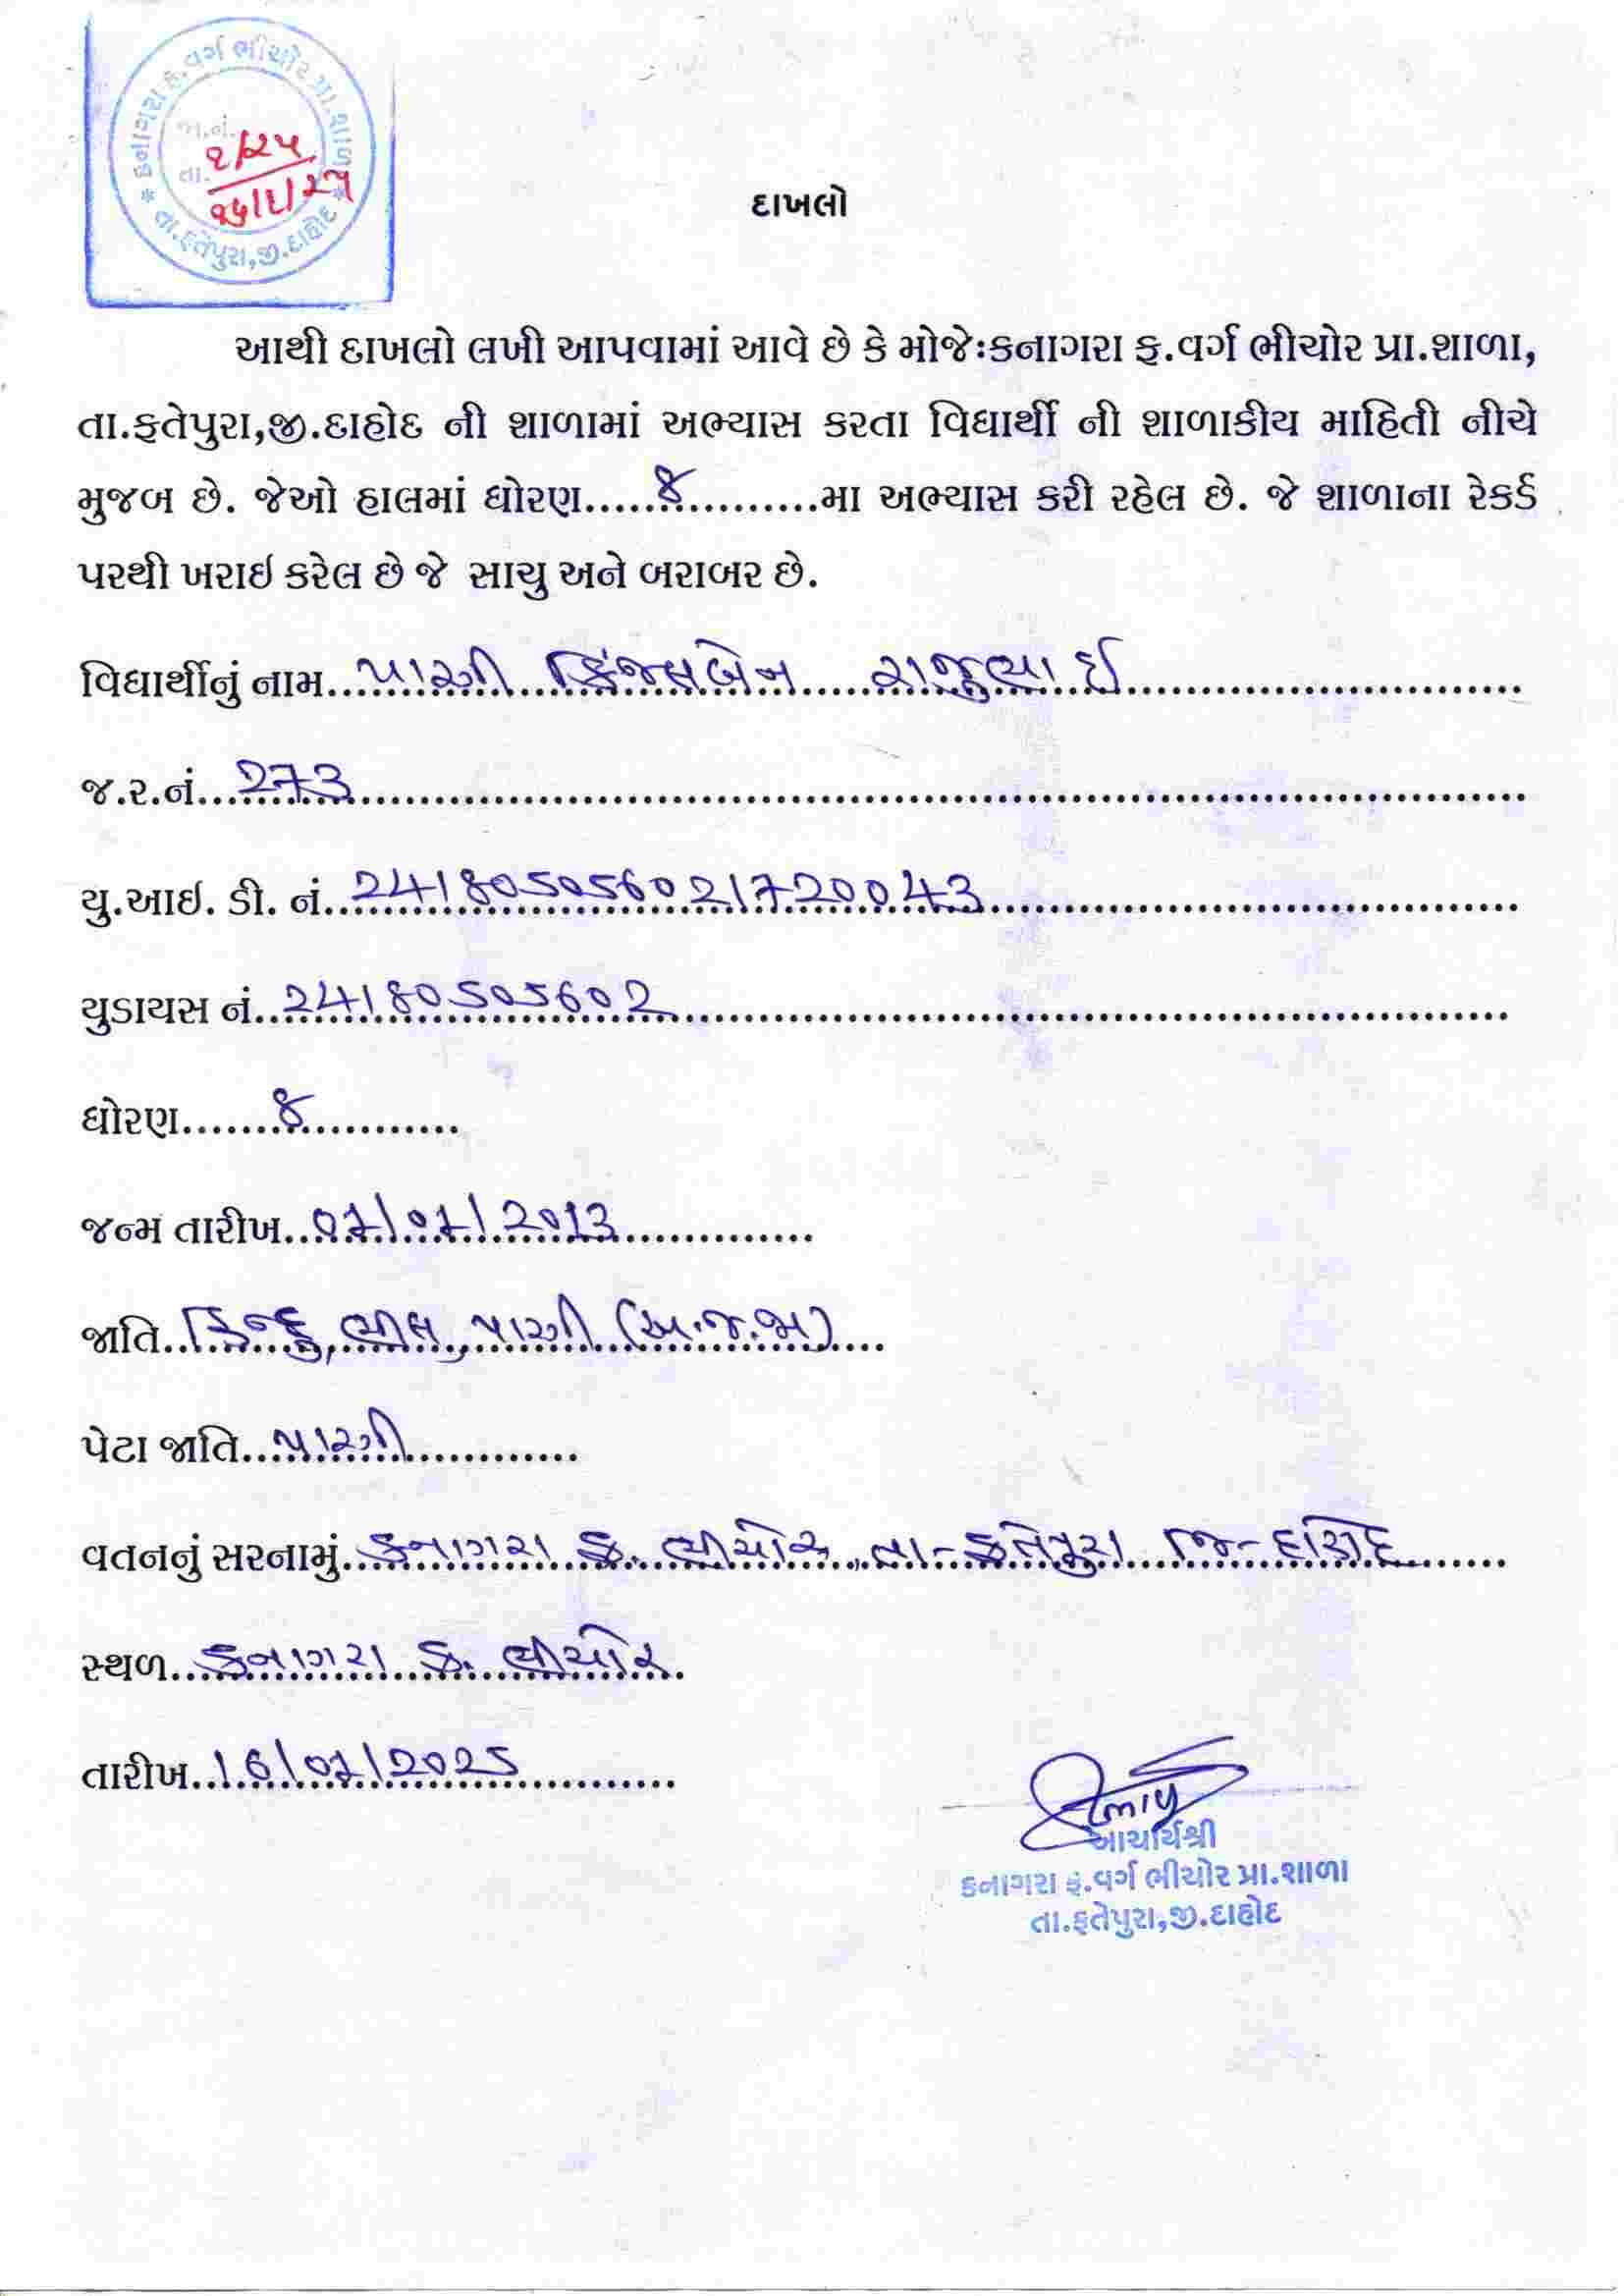 કનાગરા ફ.વર્ગ ભીચોર પ્રા.શાળા
જા.નં. ૧/૨૫
તા. ૧૬/૧/૨૫
* તા.ફતેપુરા,જી.દાહોદ *
દાખલો
આથી દાખલો લખી આપવામાં આવે છે કે મોજેઃકનાગરા ફ.વર્ગ ભીચોર પ્રા.શાળા,
તા.ફતેપુરા,જી.દાહોદ ની શાળામાં અભ્યાસ કરતા વિદ્યાર્થી ની શાળાકીય માહિતી નીચે
મુજબ છે. જેઓ હાલમાં ધોરણ.....૪..........મા અભ્યાસ કરી રહેલ છે. જે શાળાના રેકર્ડ
પરથી ખરાઇ કરેલ છે જે સાચુ અને બરાબર છે.
વિદ્યાર્થીનું નામ...પારગી કિંજલબેન રાજુભાઈ
જ.ર.નં...273
યુ.આઇ. ડી. નં...241805056021720043
યુડાયસ નં...24180505602
ધોરણ......૪
જન્મ તારીખ..07/07/2013
જાતિ..હિન્દુ, ભીલ, પારગી (અ.જ.જા)
પેટા જાતિ...પારગી
વતનનું સરનામું...કનાગરા ફ. ભીચોર, તા-ફતેપુરા જિ-દાહોદ
સ્થળ...કનાગરા ફ. ભીચોર
તારીખ..16/07/2025
આચાર્યશ્રી
કનાગરા ફ.વર્ગ ભીચોર પ્રા.શાળા
તા.ફતેપુરા,જી.દાહોદ